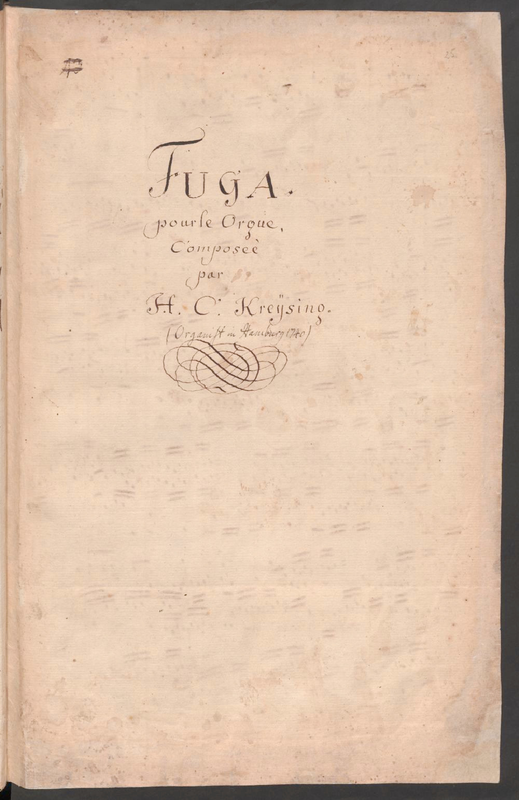 FUGA.
pour le Orgue.
Composeè
par
H. C. Kreÿsing.
(Organist in Hamburg 1740)